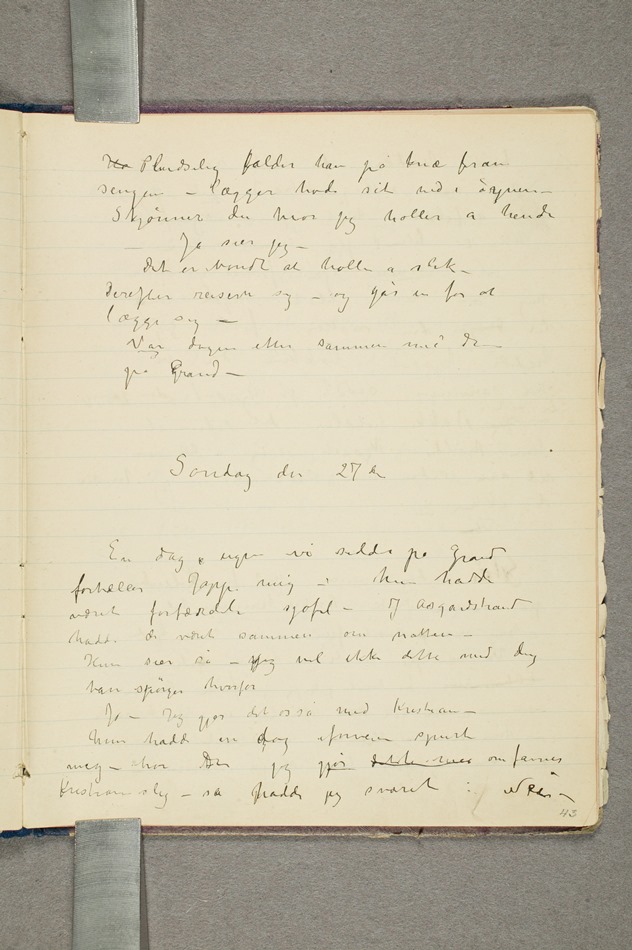 Ha Pludselig falder han på knæ foran
sengen – lægger hode sit ned i dynen –
Skjønner du hvor jeg holler a hende
– Ja sier jeg –
Det er vondt at holle a slik –
Derefter reisern sig – og går en for at
lægge sig –
Var dagen efter sammen med dem
på Grand –
Søndag den 27 de
En dag i ugen vi sidder på Grand
fortæller Jappe mig – i hun hadde
været forfærdelig sjofel – I Aasgaardstrand
hadde de været sammen om natten –
Hun sier så – jeg vil ikke dette med dig
han spørger hvorfor
Jo – Jeg gjør det også med Kristian –
hun hadde en dag iforveien spurt
meg – hvor jeg gjør dette med om fannes
Kristian slig – så hadde jeg svaret : Nei –
43